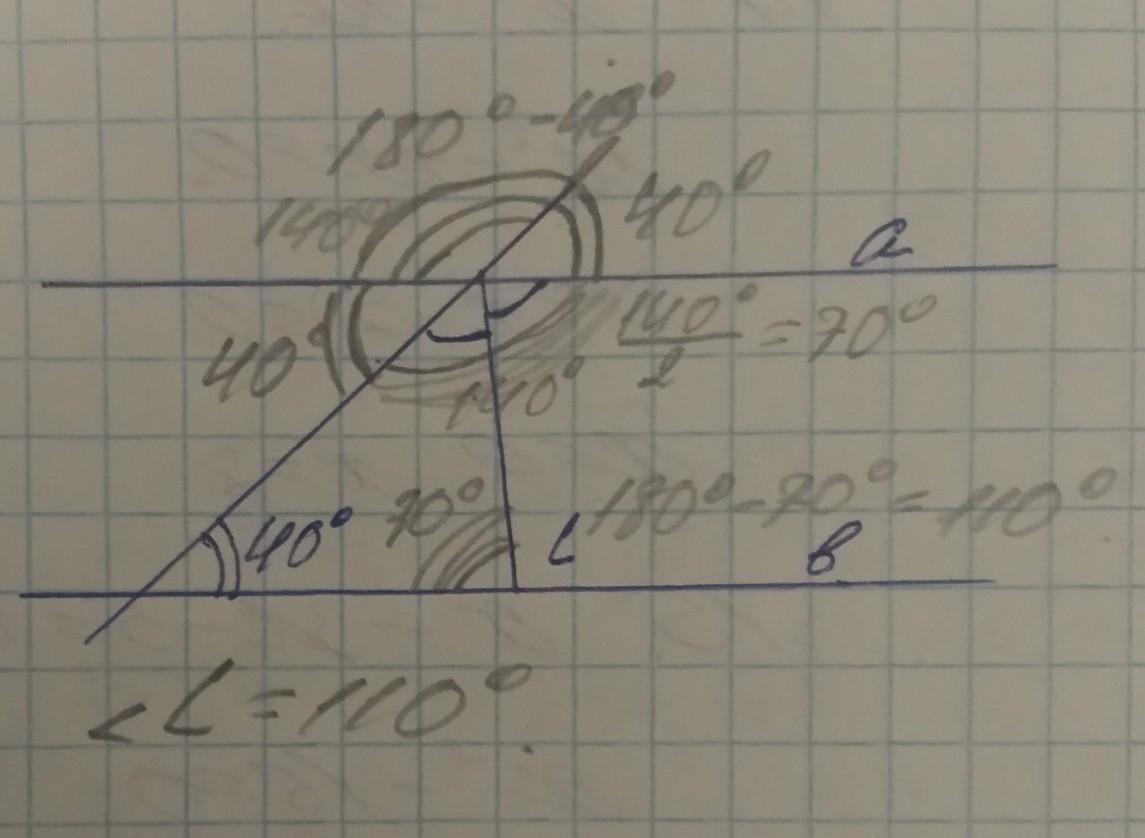 180° - 40°
140°
40°
a
40
140°
140°/2 = 70°
40°
70°
L
180° - 70° = 110°
b
< L = 110°